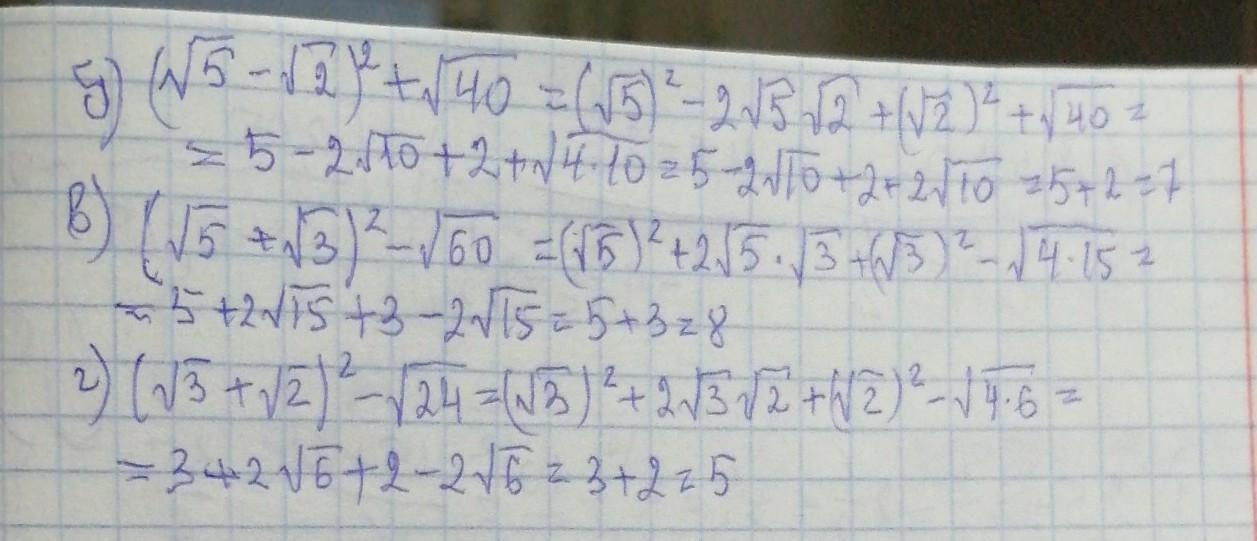 б) (√5 - √2)² + √40 = (√5)² - 2√5 √2 + (√2)² + √40 =
= 5 - 2√10 + 2 + √4·10 = 5 - 2√10 + 2 + 2√10 = 5 + 2 = 7
в) (√5 + √3)² - √60 = (√5)² + 2√5 · √3 + (√3)² - √4·15 =
= 5 + 2√15 + 3 - 2√15 = 5 + 3 = 8
г) (√3 + √2)² - √24 = (√3)² + 2√3 √2 + (√2)² - √4·6 =
= 3 + 2√6 + 2 - 2√6 = 3 + 2 = 5